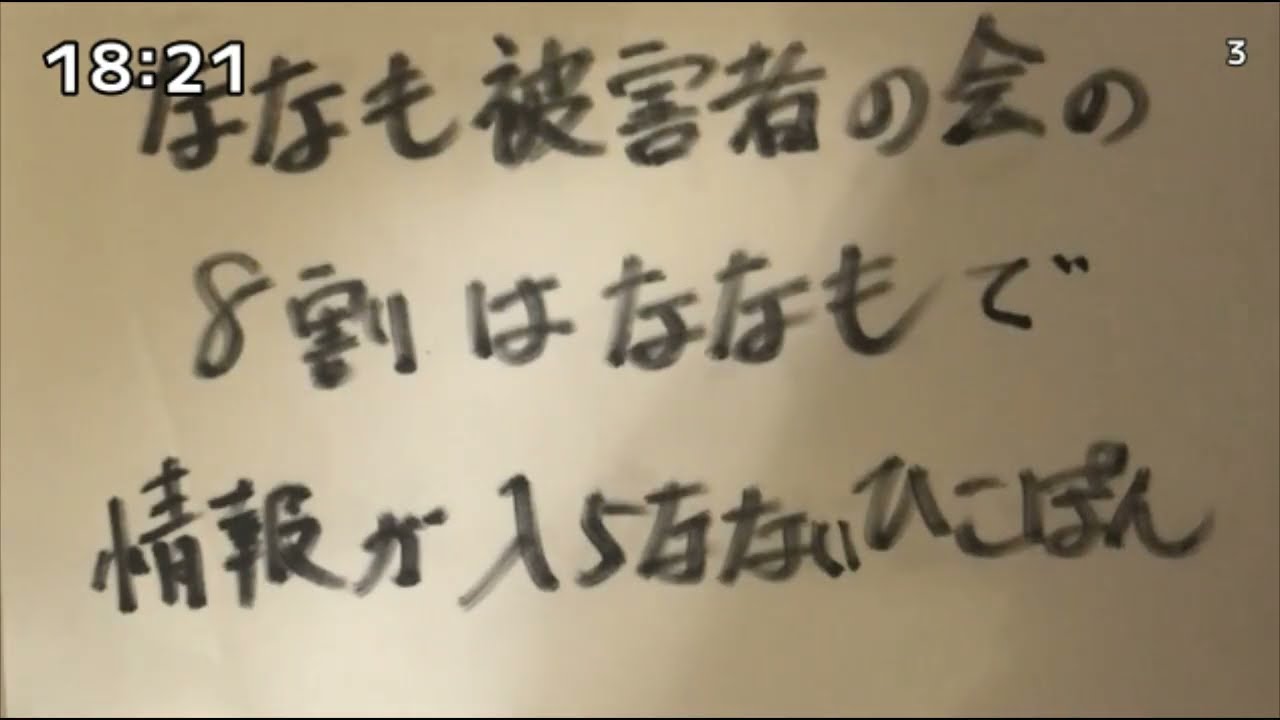 18:21
3
ななも被害者の会の
8割はななもで
情報が入らなないひこぽん